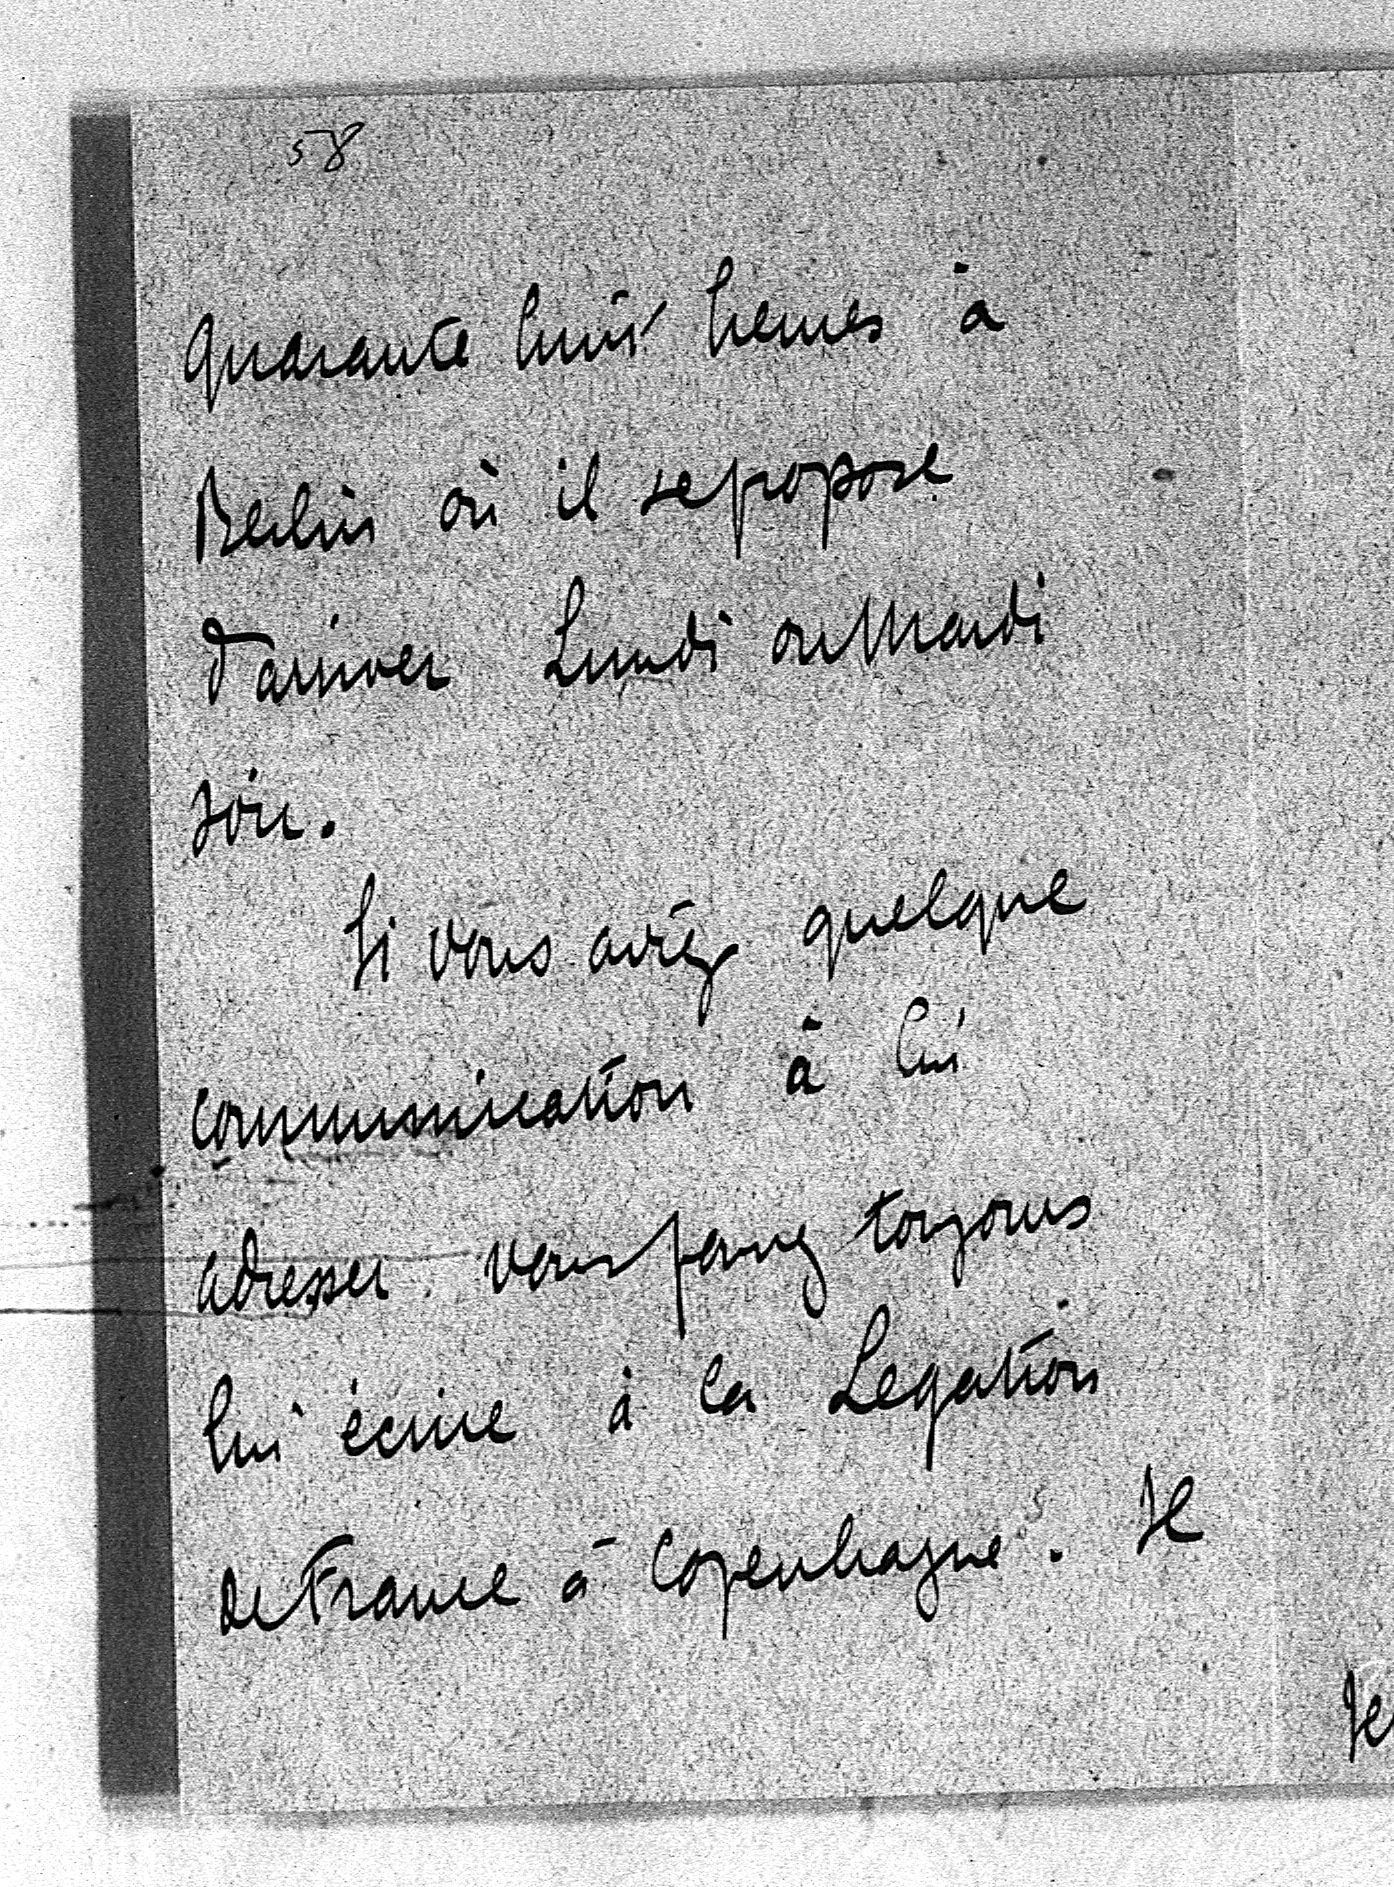 58
quarante huit heures à
Berlin où il se propose
d'arriver Lundi ou Mardi
soir.
Si vous aviez quelque
communication à lui
adresser vous pouvez toujours
lui écrire à la Légation
de France à Copenhague. Je